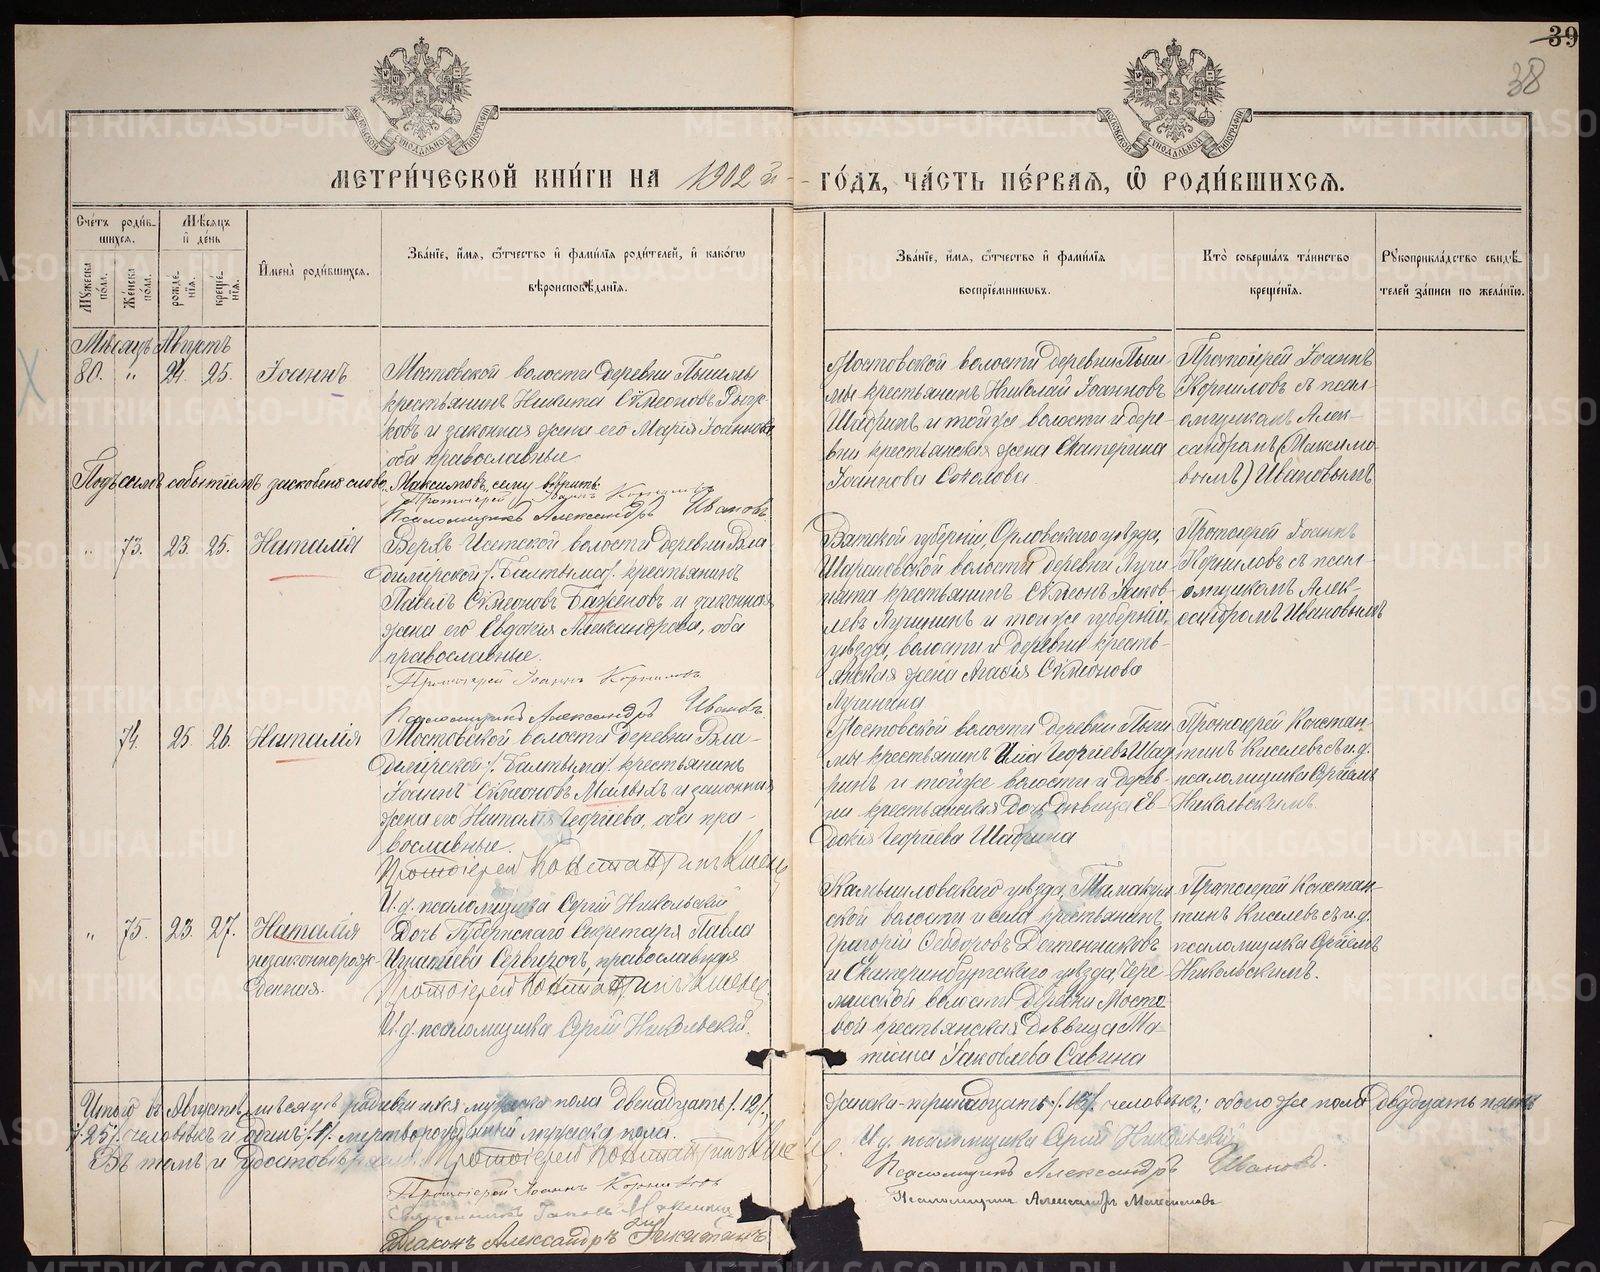 39
38
МЕТРИ́ЧЕСКОЙ КНИ́ГИ НА 1902 й ГО́ДЪ, ЧА́СТЬ ПЕ́РВАЯ, Ѡ РОДИ́ВШИХСЯ.
Сче́тъ роди́вшихся.
Му́жеска по́ла.
Же́нска по́ла.
Мѣ́сяцъ и де́нь
рожде́нїя.
креще́нїя.
И҆мена̀ роди́вшихся.
Зва́нїе, и҆́мя, ѻ҆́тчество и҆ фами́лїя роди́телей, и҆ како́гѡ
вѣроисповѣ́данїя.
Зва́нїе, и҆́мя, ѻ҆́тчество и҆ фами́лїя
воспрїе́мникѡвъ.
Кто̀ соверша́лъ та́инство
креще́нїя.
Рꙋкоприкла́дство свидѣ́-
телей за́писи по жела́нїю.
Мѣсяцъ Августъ
80. " 24. 25. Іоаннъ
Мостовской волости деревни Пышмы
крестьянинъ Никита Сѵмеоновъ
ковъ и законная жена его Марія Іоаннова
оба православные
Мостовской волости деревни Пыш-
мы крестьянинъ Николай Іоанновъ
Шадринъ и той же волости и дере-
вни крестьянская жена Екатерина
Іоаннова Соколова
Протоіерей Іоаннъ
Корниловъ съ псал-
омщикомъ Алек-
сандромъ (Максимо-
вымъ) Ивановымъ
Подъ симъ событіемъ заскоблено слово "Максимовъ", сему вѣрить
Протоіерей Іоаннъ Корниловъ
Псаломщикъ Александръ Ивановъ
" 73. 23. 25. Наталія
Верхъ Исетской волости деревни Вла-
димірской /. Балтыма/. крестьянинъ
Павелъ Сѵмеоновъ Баженовъ и законная
жена его Евдокія Александрова, оба
православные.
Протоіерей Іоаннъ Корниловъ
Псаломщикъ Александръ Ивановъ
Вятской губерніи, Орловскаго уѣзда,
Шарановской волости деревни Лучи-
нята крестьянинъ Сѵмеонъ Іаков-
левъ Лучининъ и той же губерніи,
уѣзда, волости и деревни кресть-
янская жена Агафія Сѵмеонова
Лучинина
Протоіерей Іоаннъ
Корниловъ съ псал-
омщикомъ Алек-
сандромъ Ивановымъ
74. 25. 26. Наталія
Мостовской волости деревни Вла-
димірской /. Балтыма/. крестьянинъ
Іоаннъ Сѵмеоновъ Малыхъ и законная
жена его Наталія Георгіева, оба пра-
вославные.
Протоіерей Константинъ
И. д. псаломщика Сергій Никольскій
Мостовской волости деревни Пыш-
мы крестьянинъ Илія Георгіевъ Шад-
ринъ и той же волости и дерев-
ни крестьянская дочь дѣвица Ев-
докія Георгіева Шадрина
Протоіерей Констан-
тинъ Киселевъ съ и. д.
псаломщика Сергіемъ
Никольскимъ.
" 75. 23. 27. Наталія
незаконнорож-
денная.
Дочь Губернскаго Секретаря Павла
Игнатіева православная
Протоіерей Константинъ
И. д. псаломщика Сергій Никольскій.
Камышловскаго уѣзда,
ской волости и села крестьянинъ
Григорій Ѳеодоровъ
и Екатеринбургскаго уѣзда,
волости деревни Мосто-
вой крестьянская дѣвица Та-
тіана Іаковлева Савина
Протоіерей Констан-
тинъ Киселевъ съ и. д.
псаломщика Сергіемъ
Никольскимъ.
Итого въ Августѣ мѣсяцѣ родившихся мужеска пола двенадцать /. 12/.,
женска-тринадцать /. 13/. человѣкъ; обоего же пола двадцать пять
/. 25/. человѣкъ и одинъ /. 1/. мертворожденный мужеска пола.
Въ томъ и удостовѣряемъ: Протоіерей Константинъ
Протоіерей Іоаннъ Корниловъ
Священникъ Іаковъ
Діаконъ Александръ Никитинъ
И. д. псаломщика Сергій Никольскій
Псаломщикъ Александръ Ивановъ.
Псаломщикъ Александръ Максимовъ
METRIKI.GASO-URAL.RU